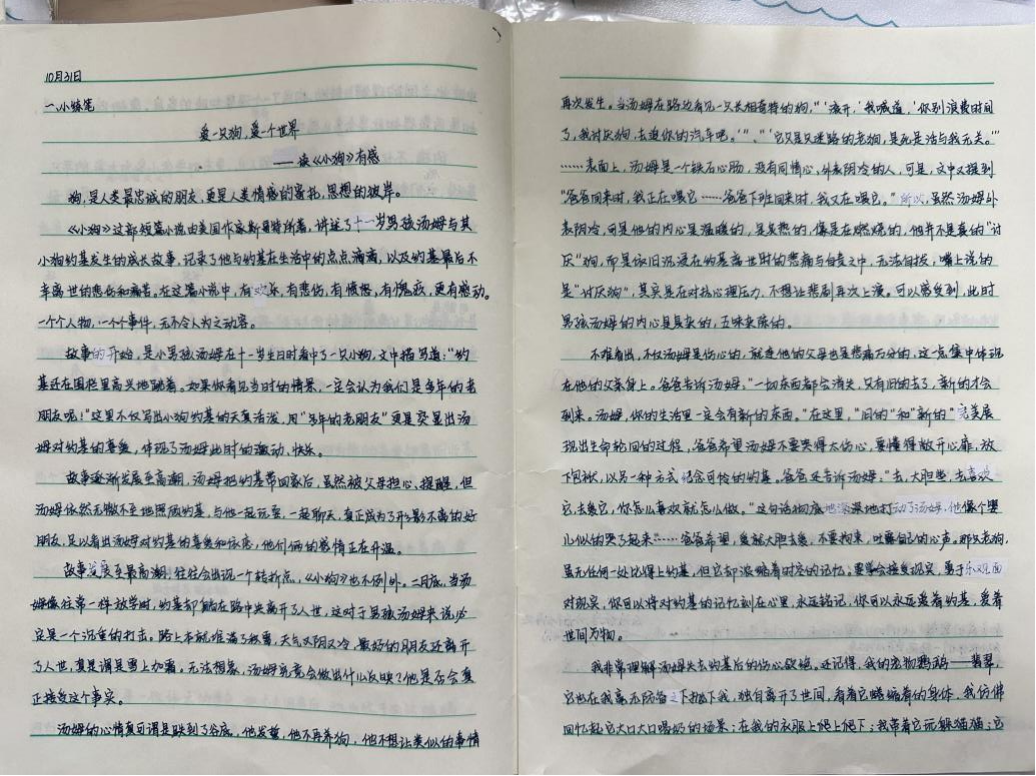 10月31日
一.小练笔
爱一只狗,爱一个世界
——读《小狗》有感
狗,是人类最忠诚的朋友,更是人类情感的寄托,思想的彼岸。
《小狗》这部短篇小说由美国作家斯哥特所著,讲述了十一岁男孩汤姆与其
小狗约基发生的成长故事,记录了他与约基在生活中的点点滴滴,以及约基最后不
幸离世的悲伤和痛苦。在这篇小说中,有欢乐,有悲伤,有愤怒,有愧疚,更有感动。
一个个人物,一个个事件,无不令人为之动容。
故事的开始,是小男孩汤姆在十一岁生日时看中了一只小狗,文中描写道:“约
基还在围栏里高兴地跳着。如果你看见当时的情景,一定会认为我们是多年的老
朋友呢!”这里不仅写出小狗约基的天真活泼,用“多年的老朋友”更是突显出汤
姆对约基的喜爱,体现了汤姆此时的激动、快乐。
故事逐渐发展至高潮,汤姆把约基带回家后,虽然被父母担心、提醒,但
汤姆依然无微不至地照顾约基,与他一起玩耍,一起聊天,真正成为了形影不离的好
朋友,足以看出汤姆对约基的喜爱和依恋,他们俩的感情正在升温。
故事发展至最高潮,往往会出现一个转折点,《小狗》也不例外。二月底,当汤
姆像往常一样放学时,约基却躺在路中央离开了人世,这对于男孩汤姆来说必
定是一个沉重的打击。路上本就堆满了积雪,天气又阴又冷,最好的朋友还离开
了人世,真是谓是雪上加霜,无法想象,汤姆究竟会做出什么反映?他是否会真
正接受这个事实。
汤姆的心情真可谓是跌到了谷底,他发誓,他不再养狗,他不想让类似的事情
再次发生。当汤姆在路边看见一只长相奇特的狗,“‘滚开,’我喊道,‘你别浪费时间
了,我讨厌狗,去追你的汽车吧。’”、“‘它只是只迷路的老狗,是死是活与我无关。’”
……表面上,汤姆是一个铁石心肠,没有同情心,外表阴冷的人,可是,文中又提到
“爸爸回来时,我正在喂它……爸爸下班回来时,我又在喂它。”所以,虽然汤姆外
表阴冷,可是他的内心是温暖的,是炙热的,像是在燃烧的,他并不是真的“讨
厌”狗,而是依旧沉浸在约基离世时的悲痛与自责之中,无法自拔,嘴上说的
是“讨厌狗”,其实是在对抗心理压力,不想让悲剧再次上演。可以感受到,此时
男孩汤姆的内心是复杂的,五味杂陈的。
不难看出,不仅汤姆是伤心的,就连他的父母也是悲痛万分的,这一点集中体现
在他的父亲身上。爸爸告诉汤姆,“一切东西都会消失,只有旧的去了,新的才会
到来。汤姆,你的生活里一定会有新的东西。”在这里,“旧的”和“新的”完美展
现出生命轮回的过程,爸爸希望汤姆不要哭得太伤心,要懂得敞开心扉,放
下包袱,以另一种方式纪念可怜的约基。爸爸还告诉汤姆,“去,大胆些,去喜欢
它,去爱它,你怎么喜欢就怎么做。”这句话彻底地深深地打动了汤姆,他像个婴
儿似的哭了起来”……爸爸希望,爱就大胆去爱,不要拘束,吐露自己的心声。那只老狗,
虽无任何一处比得上约基,但它却浓缩着时空的记忆。要学会接受现实,勇于乐观面
对现实,你可以将对约基的记忆刻在心里,永远铭记,你可以永远爱着约基,爱着
世间万物。
我非常理解汤姆失去约基后的伤心欲绝,还记得,我的宠物鹦鹉——翡翠,
它也在我毫无防备之下抛下我,独自离开了世间,看着它蜷缩着的身体,我仿佛
回忆起它大口大口喝奶的场景;在我的衣服上爬上爬下;我带着它玩躲猫猫;它